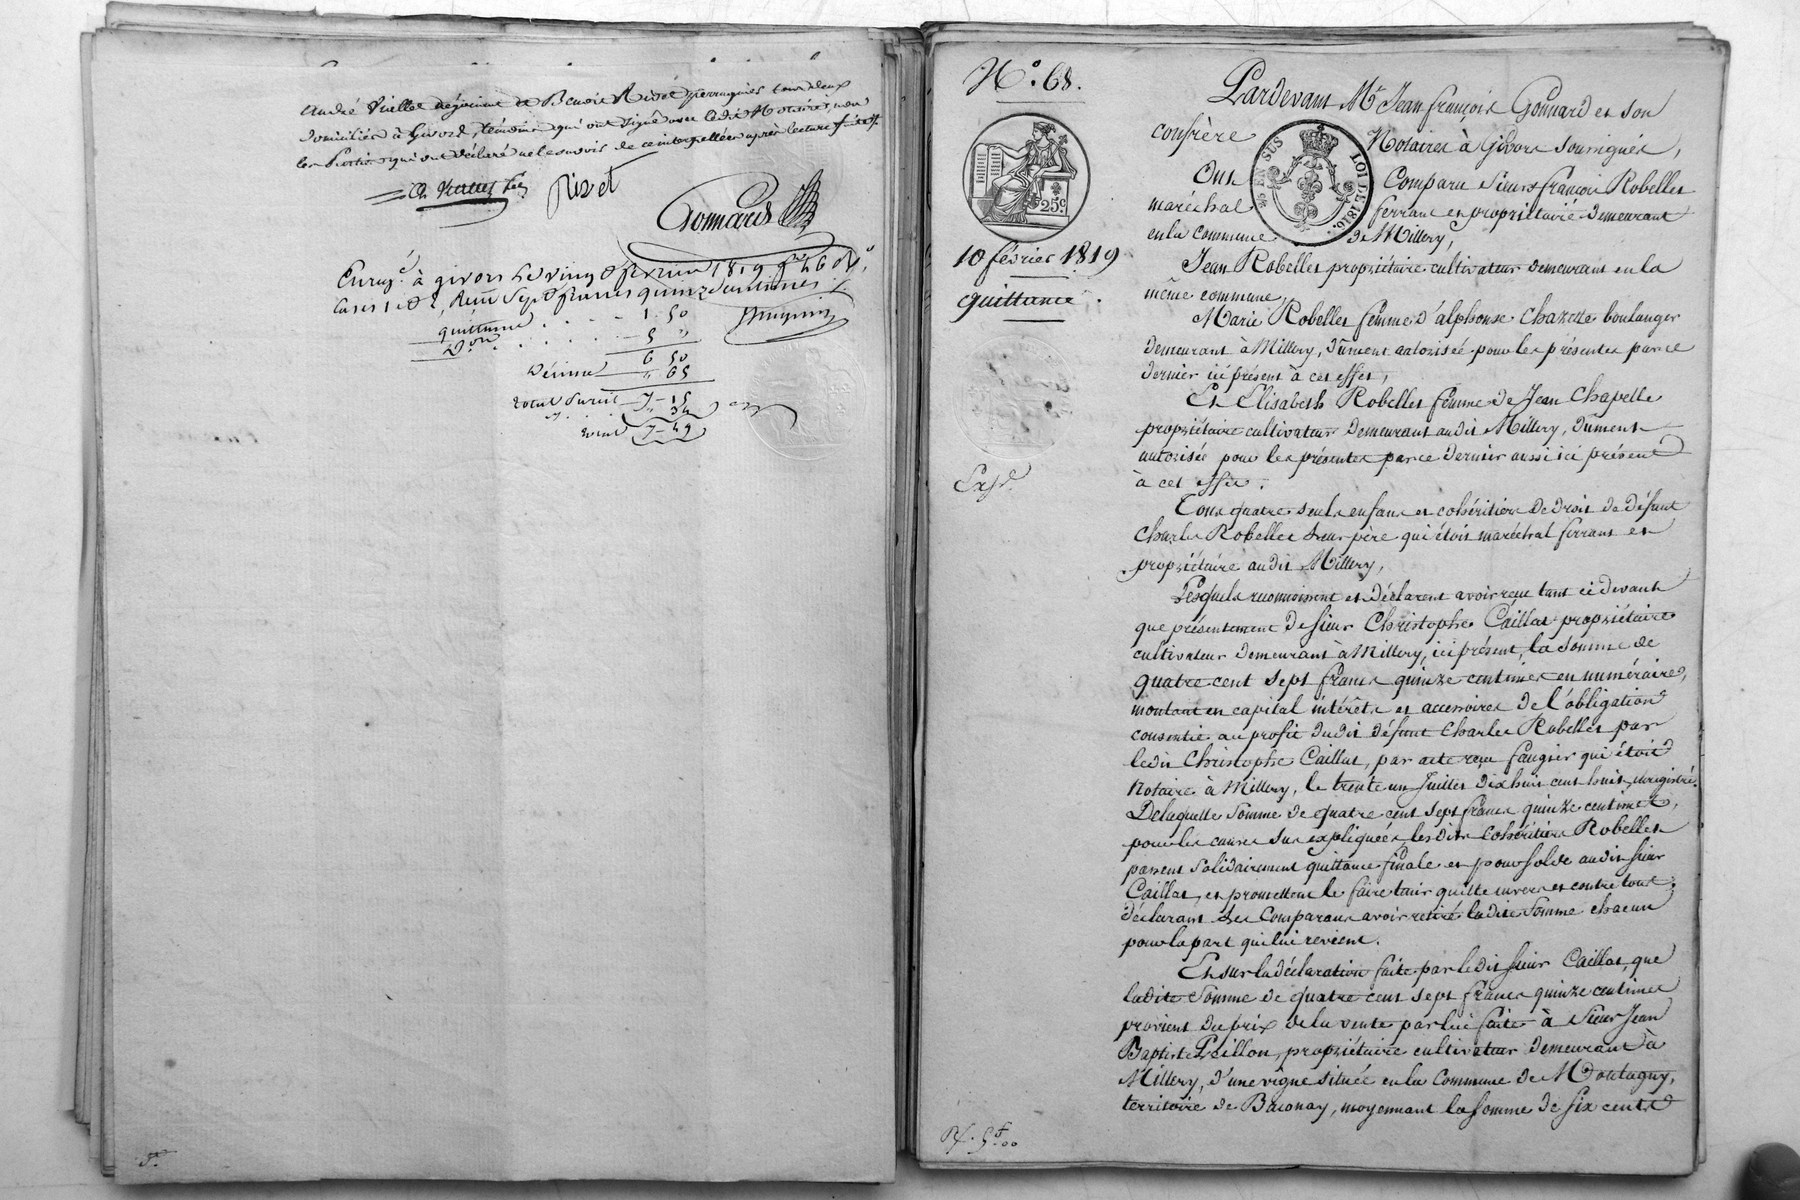 André Vielle négociant et Benoit Rizet perruquier tous deux
domiciliés à Givors, témoins qui ont signé avec ledit Notaire, non
les Parties qui ont déclaré ne le savoir de ce interpellées après lecture faite
Rizet
Gonnard
Enreg.é à givors le vingt février 1819 f.o 46 v.o
cases 1 et 2, Reçu Sept francs quinze centimes
quittance 1 50
5 "
6 50
Décime " 65
total Suivi 7 - 15
" 34
7 - 49
F.
N.o 68.
25c.
10 février 1819
quittance.
Exp.d
25 EN SUS
LOI DE 1816.
Pardevant M.e Jean françois Gonnard et son
confrère Notaires à Givors soussignés,
Ont Comparu Sieurs françois Robelles
maréchal ferrant et propriétaire demeurant
en la commune de Millery,
Jean Robelles propriétaire cultivateur demeurant en la
même commune,
Marie Robelles femme d'alphonse Chazotte boulanger
demeurant à Millery, dument autorisée pour les présentes par ce
dernier ici présent à cet effet,
Et Elisabeth Robelles femme de Jean Chapelle
propriétaire cultivateur demeurant audit Millery, dument
autorisée pour les présentes par ce dernier aussi ici présent
à cet effet.
Tous quatre seuls enfans et cohéritiers de droit de défunt
Charles Robelles leur père qui étoit maréchal ferrant et
propriétaire audit Millery,
Lesquels reconnoissent et déclarent avoir reçu tant ci devant
que présentement de sieur Christophe Caillat propriétaire
cultivateur demeurant à Millery, ici présent, la somme de
quatre cent sept francs quinze centimes en numéraire,
montant en capital intérêts et accessoires de l'obligation
consentie au profit dudit défunt Charles Robelles par
ledit Christophe Caillat, par acte reçu faugier qui étoit
Notaire à Millery, le trente un Juillet dix huit cent huit, enregistré.
De laquelle somme de quatre cent sept francs quinze centimes,
pour les causes sus expliquées, lesdits Cohéritiers Robelles
passent solidairement quittance finale et pour solde audit sieur
Caillat, et promettent le faire tenir quitte envers et contre tout;
déclarant les Comparans avoir retiré ladite somme chacun
pour la part qui lui revient.
Et sur la déclaration faite par ledit sieur Caillat, que
ladite somme de quatre cent sept francs quinze centimes
provient du prix de la vente par lui faite à sieur Jean
Baptiste Poillon, propriétaire cultivateur demeurant à
Millery, d'une vigne située en la commune de Montagny,
territoire de Baconay, moyennant la somme de six cents